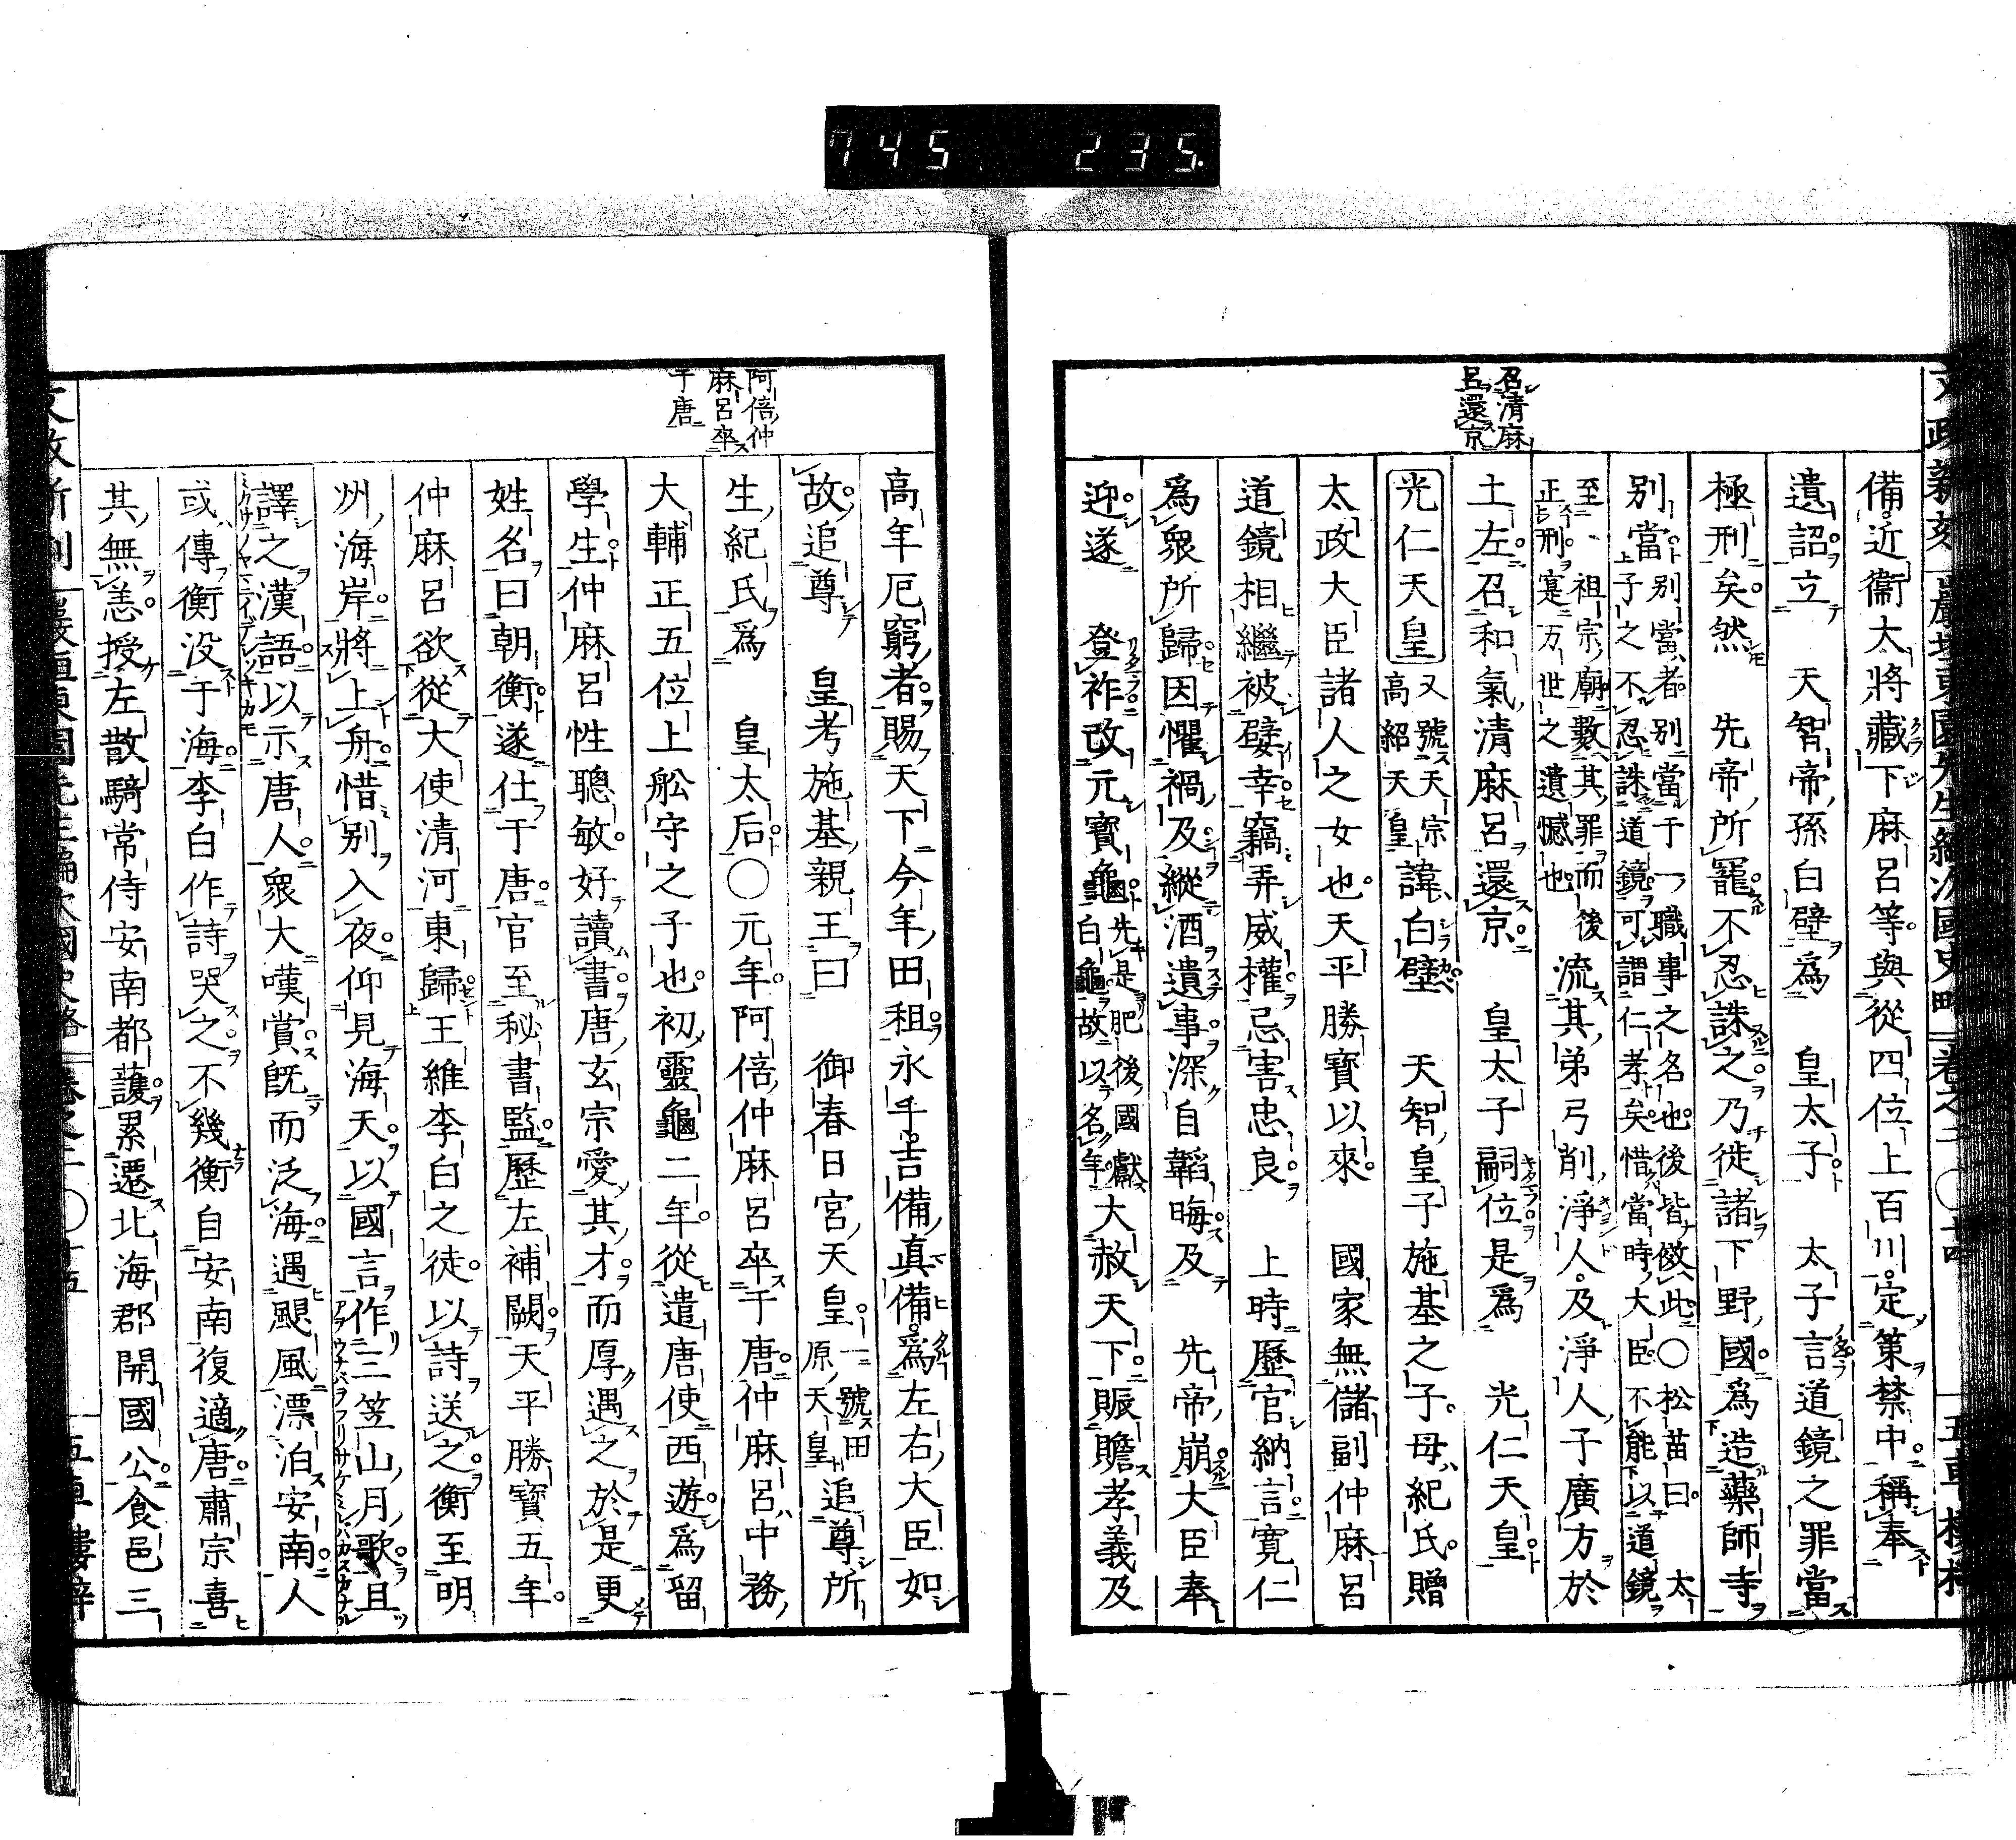 745 235
召清麻
呂還京
備近衞太將藏下麻呂等與從四位上百川定第禁中稱奉
遺詔立 天智帝孫白壁爲 皇太子 太子言道鏡之罪當
極刑矣然 先帝所寵不忍誅之乃徙諸下野國爲造藥師寺
別當別當者別當于一職事之名也後皆倣此○松苗曰太
子之不忍誅道鏡可謂仁孝矣惜當時大臣不能以道鏡
至祖宗廟數其罪而後
正刑寔万世之遺憾也流其弟弓削淨人及淨人子廣方於
土左召和氣清麻呂還京 皇太子嗣位是爲 光仁天皇
光仁天皇又號天宗
高紹天皇諱白壁 天智皇子施基之子母紀氏贈
太政大臣諸人之女也天平勝寶以來 國家無儲副仲麻呂
道鏡相繼被嬖幸竊弄威權忌害忠良 上時歷官納言寛仁
爲衆所歸因懼禍及縱酒遺事深自韜晦及 先帝崩大臣奉
迎遂 登祚改元寶龜先是肥後國獻
白龜故以名年大赦天下賑贍孝義及
阿倍仲
麻呂卒
于唐
高年厄窮者賜天下今年田租永手吉備真備爲左右大臣如
故追尊 皇考施基親王曰 御春日宮天皇一號田
原天皇追尊所
生紀氏爲 皇太后○元年阿倍仲麻呂卒于唐仲麻呂中務
大輔正五位上舩守之子也初靈龜二年從遣唐使西遊爲留
學生仲麻呂性聰敏好讀書唐玄宗愛其才而厚遇之於是更
姓名曰朝衡遂仕于唐官至秘書監歷左補闕天平勝寶五年
仲麻呂欲從大使清河東歸王維李白之徒以詩送之衡至明
州海岸將上舟惜別入夜仰見海天以國言作三笠山月歌且
アアウナバヲフリサケミレバカスガナル
ミカサノヤマニイデシツキカモ
譯之漢語以示唐人衆大嘆賞旣而泛海遇颶風漂泊安南人
或傳衡没于海李白作詩哭之不幾衡自安南復適唐肅宗喜
其無恙授左散騎常侍安南都護累遷北海郡開國公食邑三